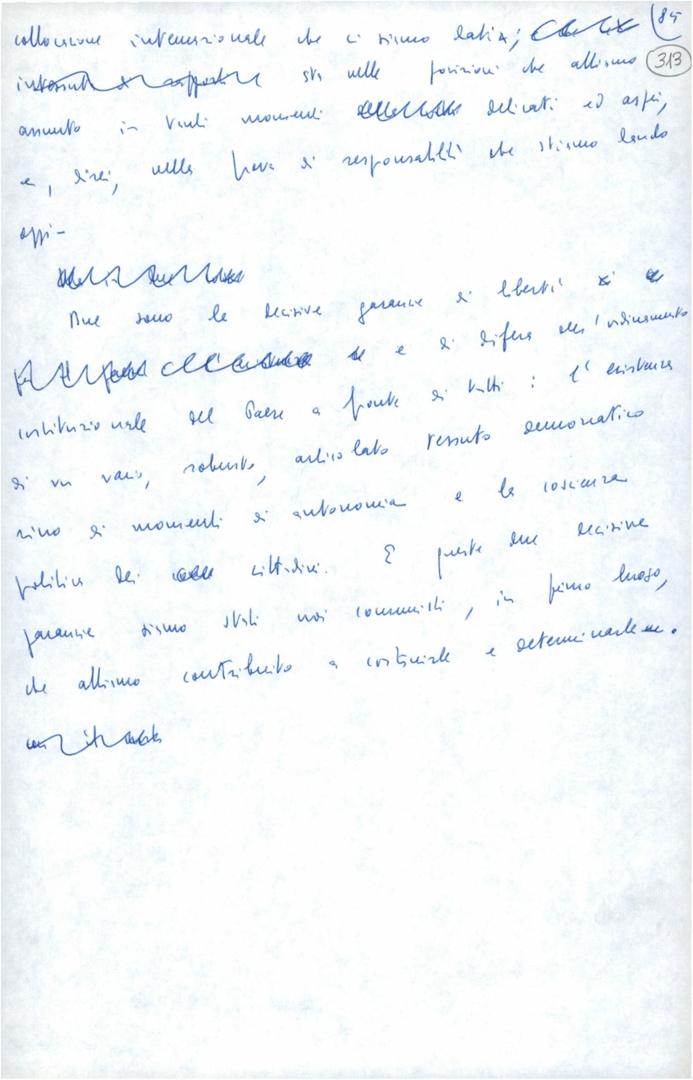 85
collocazione internazionale che ci siamo data;
313
sta nelle posizioni che abbiamo
assunto in tanti momenti delicati ed aspri,
e, direi, nella prova di responsabilità che stiamo dando
oggi-
Due sono le decisive garanzie di libertà
e di difesa dell'ordinamento
istituzionale del Paese a fronte di tutti: l'esistenza
di un vario, robusto, articolato tessuto democratico
ricco di momenti di autonomia e la coscienza
politica dei cittadini. E queste due decisive
garanzie siamo stati noi comunisti, in primo luogo,
che abbiamo contribuito a costruirle e determinarle.